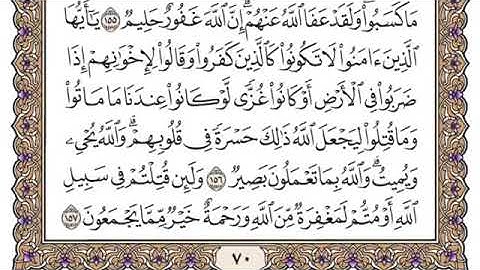 مَا كَسَبُوا۟ وَلَقَدْ عَفَا ٱللَّهُ عَنْهُمْ إِنَّ ٱللَّهَ غَفُورٌ حَلِيمٌ ١٥٥ يَـٰٓأَيُّهَا
ٱلَّذِينَ ءَامَنُوا۟ لَا تَكُونُوا۟ كَٱلَّذِينَ كَفَرُوا۟ وَقَالُوا۟ لِإِخْوَٰنِهِمْ إِذَا
ضَرَبُوا۟ فِى ٱلْأَرْضِ أَوْ كَانُوا۟ غُزًّى لَّوْ كَانُوا۟ عِندَنَا مَا مَاتُوا۟
وَمَا قُتِلُوا۟ لِيَجْعَلَ ٱللَّهُ ذَٰلِكَ حَسْرَةً فِى قُلُوبِهِمْ ۗ وَٱللَّهُ يُحْىِۦ
وَيُمِيتُ ۗ وَٱللَّهُ بِمَا تَعْمَلُونَ بَصِيرٌ ١٥٦ وَلَئِن قُتِلْتُمْ فِى سَبِيلِ
ٱللَّهِ أَوْ مُتُّمْ لَمَغْفِرَةٌ مِّنَ ٱللَّهِ وَرَحْمَةٌ خَيْرٌ مِّمَّا يَجْمَعُونَ ١٥٧
٧٠